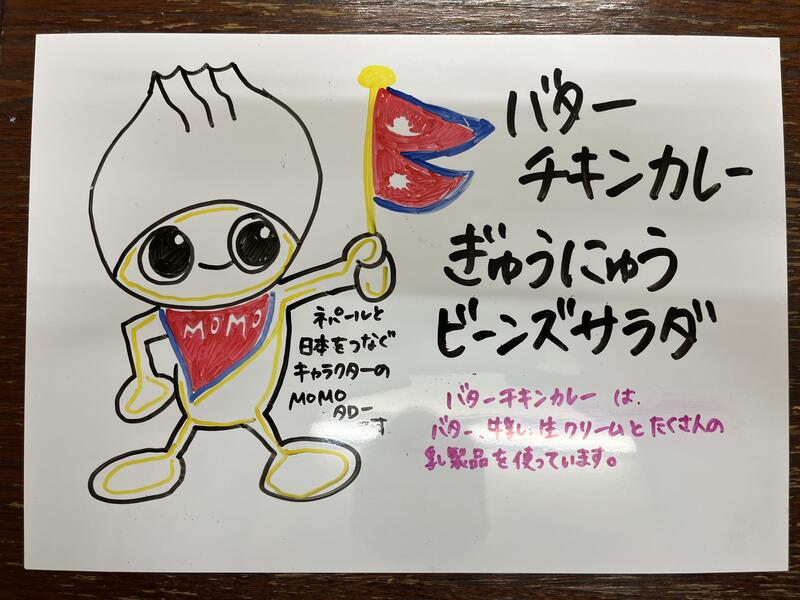 バター
チキンカレー
ぎゅうにゅう
ビーンズサラダ
MOMO
ネパールと
日本をつなぐ
キャラクターの
MOMO
タロー
です
バターチキンカレーは、
バター、牛乳、生クリームとたくさんの
乳製品を使っています。